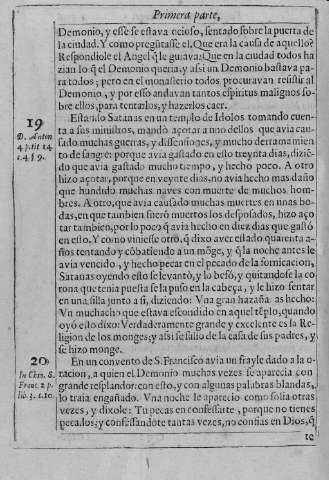 Primera parte,
Demonio, y esse se estava ocioso, sentado sobre la puerta de
la ciudad. Y como pregũtasse el, Que era la causa de aquello?
Respondiole el Angel q̃ le guiava: Que en la ciudad todos ha
zian lo q̃ el Demonio queria, y assi un Demonio bastava pa
ra todos; pero en el monasterio todos procuravan resistir al
Demonio, y por esso andavan tantos espiritus malignos so-
bre ellos, para tentarlos, y hazerlos caer.
19
D. Anton
4 p. tit 14
c. 4 § 9.
Estando Satanas en un templo de Idolos tomando cuen
ta a sus ministros, mandò açotar a uno dellos que avia cau-
sado muchas guerras, y dissensiones, y mucho derramamien
to de sangre: porque avia gastado en esto treynta dias, dizie͂
do que avia gastado mucho tiempo, y hecho poco. A otro
hizo açotar, porque en veynte dias, no avia hecho mas daño
que hundido muchas naves con muerte de muchos hom-
bres. A otro, que avia causado muchas muertes en unas bo-
das, en que tambien fuerõ muertos los desposados, hizo aço
tar tambien, por lo poco q̃ avia hecho en diez dias que gastò
en esto. Y como viniesse otro, q̃ dixo aver estado quarenta a-
ños tentando y cõbatiendo a un mõge, y q̃ la noche antes le
avia vencido, y hecho pecar en el pecado de la fornicacion,
Satanas oyendo esto se levantò, y lo besò, y quitandose la co
rona que tenia puesta se la puso en la cabeça, y le hizo sentar
en una silla junto a si, diziendo: Una gran hazaña as hecho:
Un muchacho que estava escondido en aquel tẽplo, quando
oyò esto dixo: Verdaderamente grande y excelente es la Re-
ligion de los monges; y assi se salio de la casa de sus padres, y
se hizo monge.
20
In Chro. S.
Franc. 2 p.
lib. 3. c. 10.
En un convento de S. Francisco avia un frayle dado a la o-
racion, a quien el Demonio muchas vezes se aparecia con
grande resplandor: con esto, y con algunas palabras blandas,
lo traia engañado. Una noche le aparecio como solia otras
vezes, y dixole: Tu pecas en confessarte, porque no tienes
pecados; y confessandote tantas vezes, no confias en Dios, q̃
te